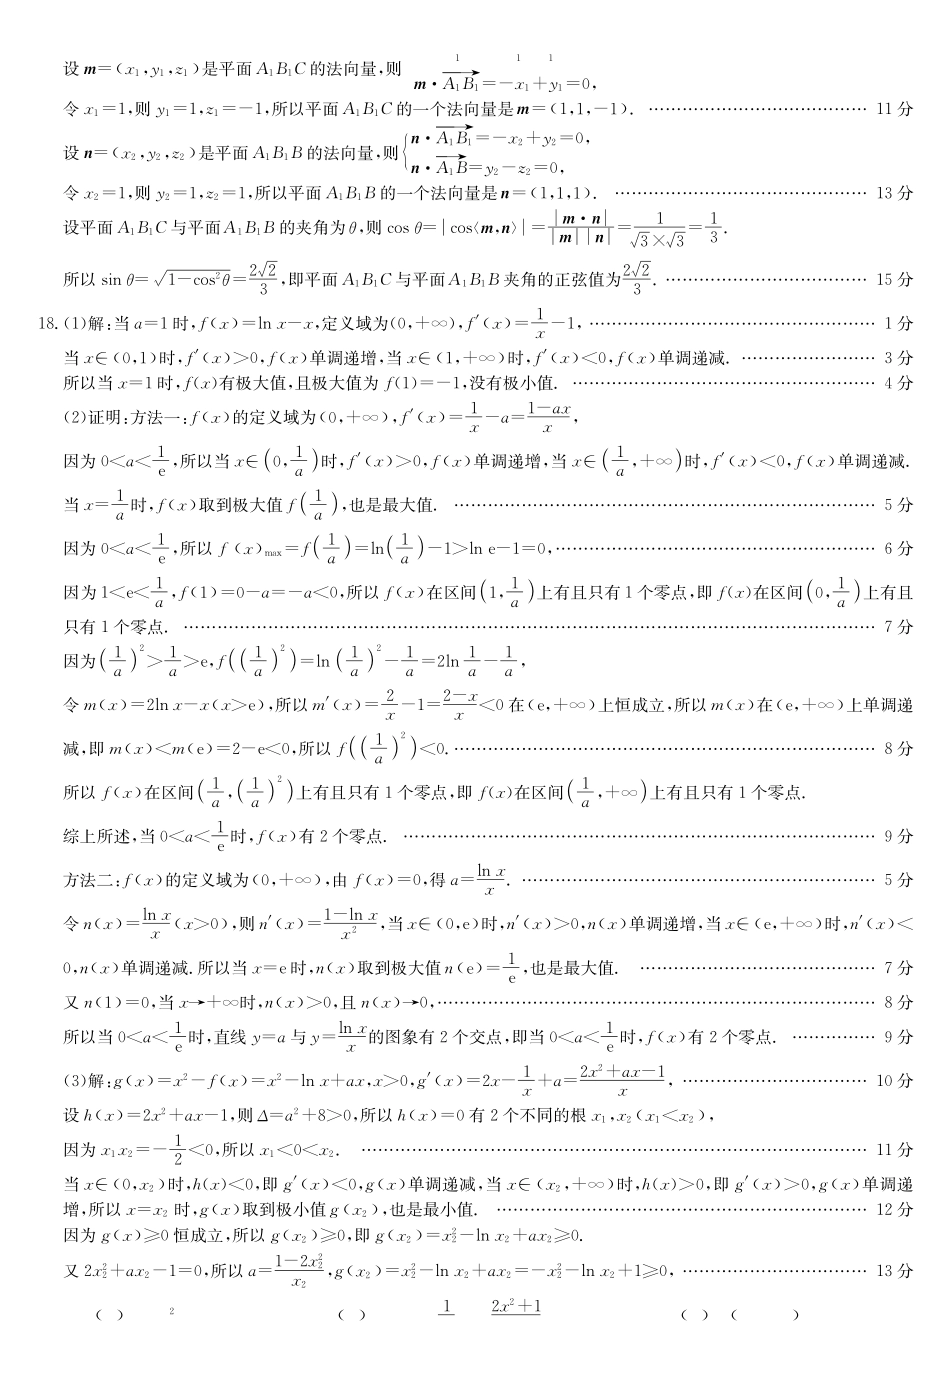 设 m=(x₁,y₁,z₁)是平面 A₁B₁C 的法向量,则 m·A₁B₁=-x₁+y₁=0,
令 x₁=1,则 y₁=1,z₁=-1,所以平面 A₁B₁C 的一个法向量是 m=(1,1,-1). …… 11 分
设 n=(x₂,y₂,z₂)是平面 A₁B₁B 的法向量,则{n·A₁B₁=-x₂+y₂=0, n·A₁B=y₂-z₂=0,
令 x₂=1,则 y₂=1,z₂=1,所以平面 A₁B₁B 的一个法向量是 n=(1,1,1). …… 13 分
设平面 A₁B₁C 与平面 A₁B₁B 的夹角为 θ,则 cos θ=|cos⟨m,n⟩|=|m·n|/(|m||n|)=1/(√3×√3)=1/3.
所以 sin θ=√(1-cos²θ)=2√2/3,即平面 A₁B₁C 与平面 A₁B₁B 夹角的正弦值为2√2/3. …… 15 分
18.(1)解:当 a=1 时,f(x)=ln x-x,定义域为(0,+∞),f′(x)=1/x-1, …… 1 分
当 x∈(0,1)时,f′(x)>0,f(x)单调递增,当 x∈(1,+∞)时,f′(x)<0,f(x)单调递减. …… 3 分
所以当 x=1 时,f(x)有极大值,且极大值为 f(1)=-1,没有极小值. …… 4 分
(2)证明:方法一:f(x)的定义域为(0,+∞),f′(x)=1/x-a=(1-ax)/x,
因为 0<a<1/e,所以当 x∈(0,1/a)时,f′(x)>0,f(x)单调递增,当 x∈(1/a,+∞)时,f′(x)<0,f(x)单调递减.
当 x=1/a时,f(x)取到极大值 f(1/a),也是最大值. …… 5 分
因为 0<a<1/e,所以 f(x)max=f(1/a)=ln(1/a)-1>ln e-1=0, …… 6 分
因为 1<e<1/a,f(1)=0-a=-a<0,所以 f(x)在区间(1,1/a)上有且只有 1 个零点,即 f(x)在区间(0,1/a)上有且
只有 1 个零点. …… 7 分
因为(1/a)²>1/a>e,f((1/a)²)=ln(1/a)²-1/a=2ln 1/a-1/a,
令 m(x)=2ln x-x(x>e),所以 m′(x)=2/x-1=(2-x)/x<0 在(e,+∞)上恒成立,所以 m(x)在(e,+∞)上单调递
减,即 m(x)<m(e)=2-e<0,所以 f((1/a)²)<0. …… 8 分
所以 f(x)在区间(1/a,(1/a)²)上有且只有 1 个零点,即 f(x)在区间(1/a,+∞)上有且只有 1 个零点.
综上所述,当 0<a<1/e时,f(x)有 2 个零点. …… 9 分
方法二:f(x)的定义域为(0,+∞),由 f(x)=0,得 a=ln x/x. …… 5 分
令 n(x)=ln x/x(x>0),则 n′(x)=(1-ln x)/x²,当 x∈(0,e)时,n′(x)>0,n(x)单调递增,当 x∈(e,+∞)时,n′(x)<
0,n(x)单调递减.所以当 x=e 时,n(x)取到极大值 n(e)=1/e,也是最大值. …… 7 分
又 n(1)=0,当 x→+∞时,n(x)>0,且 n(x)→0, …… 8 分
所以当 0<a<1/e时,直线 y=a 与 y=ln x/x的图象有 2 个交点,即当 0<a<1/e时,f(x)有 2 个零点. …… 9 分
(3)解:g(x)=x²-f(x)=x²-ln x+ax,x>0,g′(x)=2x-1/x+a=(2x²+ax-1)/x, …… 10 分
设 h(x)=2x²+ax-1,则 Δ=a²+8>0,所以 h(x)=0 有 2 个不同的根 x₁,x₂(x₁<x₂),
因为 x₁x₂=-1/2<0,所以 x₁<0<x₂. …… 11 分
当 x∈(0,x₂)时,h(x)<0,即 g′(x)<0,g(x)单调递减,当 x∈(x₂,+∞)时,h(x)>0,即 g′(x)>0,g(x)单调递
增,所以 x=x₂ 时,g(x)取到极小值 g(x₂),也是最小值. …… 12 分
因为 g(x)≥0 恒成立,所以 g(x₂)≥0,即 g(x₂)=x₂²-ln x₂+ax₂≥0.
又 2x₂²+ax₂-1=0,所以 a=(1-2x₂²)/x₂,g(x₂)=x₂²-ln x₂+ax₂=-x₂²-ln x₂+1≥0, …… 13 分
( ) 2 ( ) 1 2x²+1 ( ) ( )